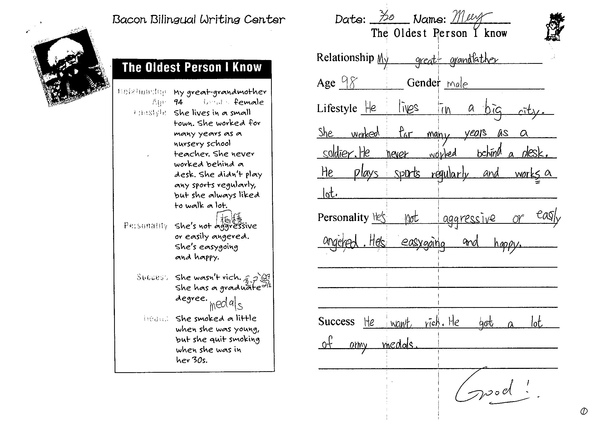 Bacon Bilingual Writing Center
Date: 7/30 Name: Meg
The Oldest Person I know
The Oldest Person I Know
Relationship My great-grandmother
Age 94 Gender female
Lifestyle She lives in a small
town. She worked for
many years as a
nursery school
teacher. She never
worked behind a
desk. She didn't play
any sports regularly,
but she always liked
to walk a lot.
Personality She's not aggressive
or easily angered.
She's easygoing
and happy.
Success She wasn't rich.
She has a graduate
degree.
medals
She smoked a little
when she was young,
but she quit smoking
when she was in
her 30s.
Relationship My great-grandfather
Age 98 Gender male
Lifestyle He lives in a big city.
She worked for many years as a
soldier. He never worked behind a desk.
He plays sports regularly and works a
lot.
Personality He's not aggressive or easily
angered. He's easygoing and happy.
Success He want rich. He got a lot
of army medals.
Good!